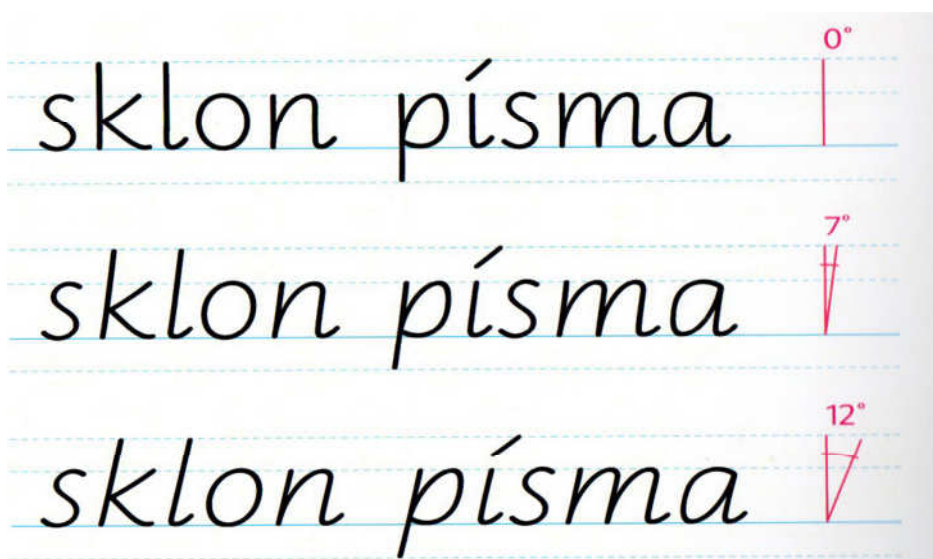 0°
sklon písma
7°
sklon písma
12°
sklon písma